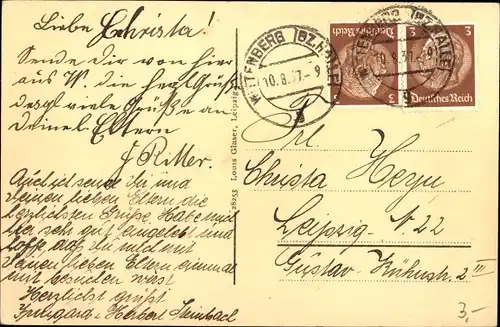 Liebe Christa!
Sende Dir von hier
aus W. die herzl. Grüße
desgl viele Grüße an
Deine l. Eltern
J. Ritter.
Auch ich sende Dir und
Deinen lieben Eltern die
herzlichsten Grüße. Habe mich
hier sehr gut eingelebt und
hoffe, daß Du mich mit
Deinen lieben Eltern einmal
mit besuchen wirst
Herzlichst grüßt
Irmgard u. Herbert Steinbach
28253 Louis Glaser, Leipzig
WITTENBERG (BZ. HALLE)
10.8.37.-9
a
WITTENBERG (BZ. HALLE)
10.8.37.-9
a
3
Deutsches Reich
3
Deutsches Reich
Frl.
Christa Heyn
Leipzig N 22
Gustav-Kühnstr. 2 III
3,-